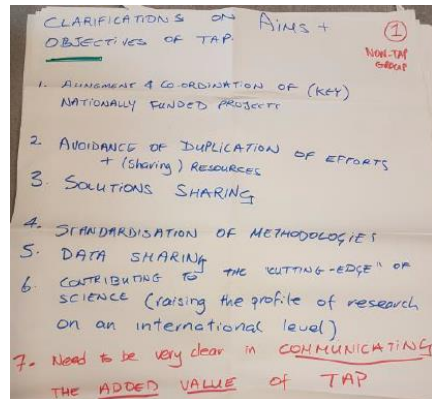 CLARIFICATIONS ON AIMS +
OBJECTIVES OF TAP.
1
NON-TAP
GROUP
1. ALINGMENT & CO-ORDINATION OF (KEY)
NATIONALLY FUNDED PROJECTS
2. AVOIDANCE OF DUPLICATION OF EFFORTS
+ (Sharing) RESOURCES
3. SOLUTIONS SHARING
4. STANDARDISATION OF METHODOLOGIES
5. DATA SHARING
6. CONTRIBUTING TO THE "CUTTING-EDGE" OF
SCIENCE (raising the profile of research
on an international level)
7. Need to be very clear in COMMUNICATING
THE ADDED VALUE of TAP